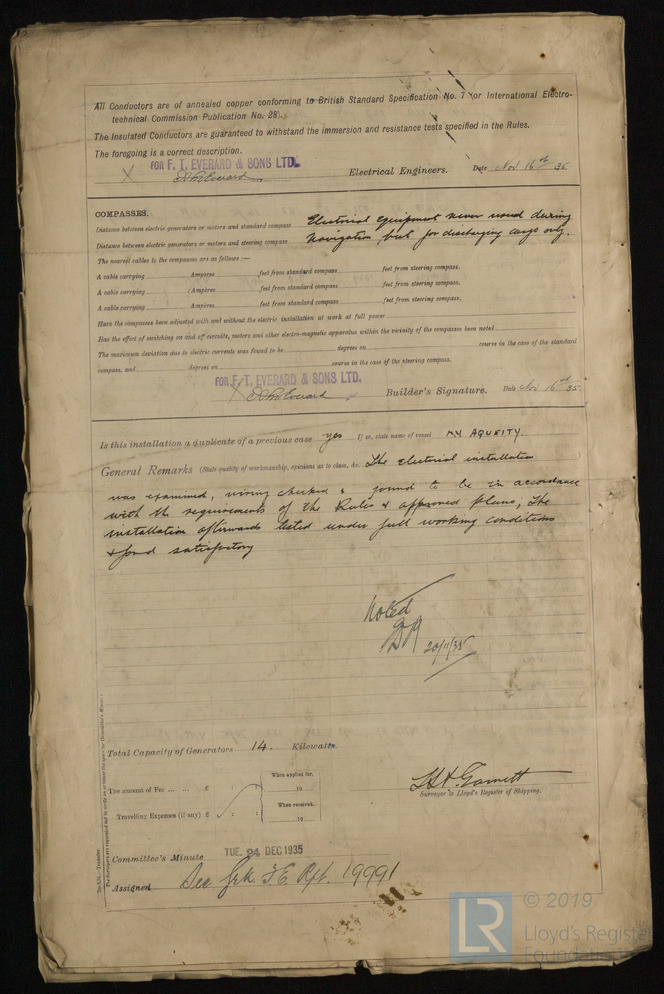 All Conductors are of annealed copper conforming to British Standard Specification No. 7 (or International Electro-
technical Commission Publication No. 28).
The Insulated Conductors are guaranteed to withstand the immersion and resistance tests specified in the Rules.
The foregoing is a correct description.
FOR F. T. EVERARD & SONS LTD.
Electrical Engineers. Date Nov 16th 35
COMPASSES.
Distance between electric generators or motors and standard compass Electrical equipment never used during
Distance between electric generators or motors and steering compass Navigation, but for discharging cargo only.
The nearest cables to the compasses are as follows:—
A cable carrying Ampères feet from standard compass feet from steering compass.
A cable carrying Ampères feet from standard compass feet from steering compass.
A cable carrying Ampères feet from standard compass feet from steering compass.
Have the compasses been adjusted with and without the electric installation at work at full power
Has the effect of switching on and off circuits, motors and other electro-magnetic apparatus within the vicinity of the compasses been noted
The maximum deviation due to electric currents was found to be degrees on course in the case of the standard
compass, and degrees on course in the case of the steering compass.
FOR F. T. EVERARD & SONS LTD.
Builder's Signature. Date Nov 16th 35
Is this installation a duplicate of a previous case yes If so, state name of vessel MV AQUEITY.
General Remarks (State quality of workmanship, opinions as to class, &c. The electrical installation
was examined, wiring checked & found to be in accordance
with the requirements of the Rules & approved plans, The
installation afterwards tested under full working conditions
& found satisfactory
Noted
20/11/35
Total Capacity of Generators 14. Kilowatts.
The amount of Fee ... ... £ : : When applied for, 19
Travelling Expenses (if any) £ : : When received, 19
Surveyor to Lloyd's Register of Shipping.
Committee's Minute TUE. 24 DEC 1935
Assigned See Grk. F.E. Rpt. 19991
© 2019
LR
Lloyd's Register
Foundation